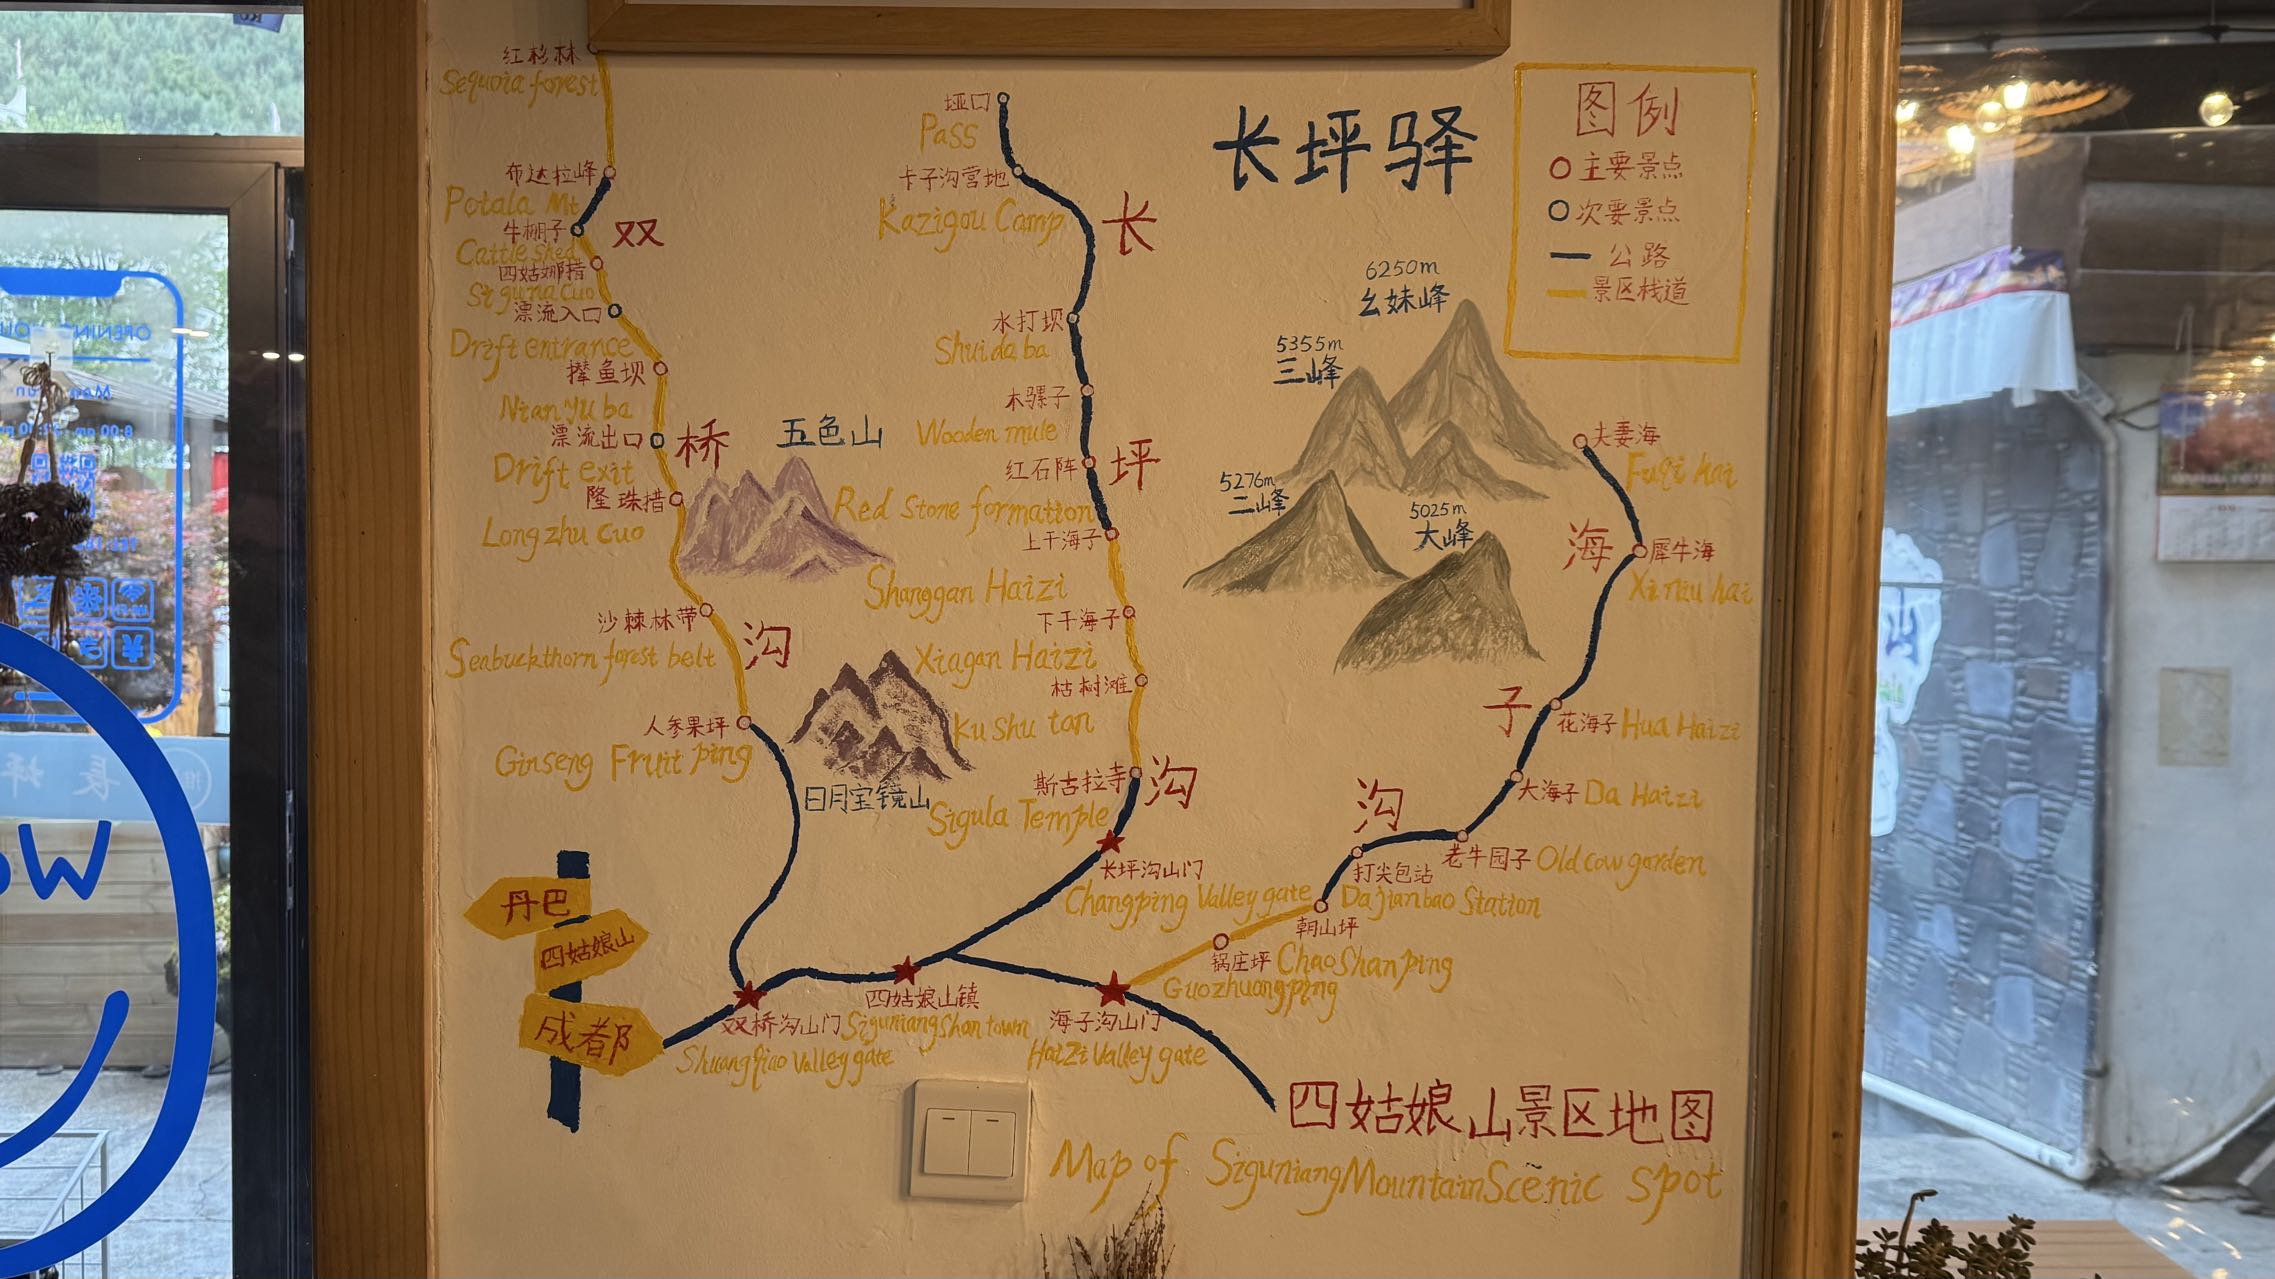 红杉林
Sequoia forest
布达拉峰
Potala Mt
牛棚子
Cattle shed
四姑娜措
Si gu na cuo
漂流入口
Drift entrance
撵鱼坝
Nian yu ba
漂流出口
Drift exit
隆珠措
Longzhu cuo
沙棘林带
Seabuckthorn forest belt
人参果坪
Ginseng Fruit ping
双
桥
沟
五色山
日月宝镜山
垭口
Pass
卡子沟营地
Kazigou Camp
水打坝
Shuida ba
木骡子
Wooden mule
红石阵
Red Stone formation
上干海子
Shanggan Haizi
下干海子
Xiagan Haizi
枯树滩
Ku shu tan
斯古拉寺
Sigula Temple
长
坪
沟
长坪沟山门
Changping Valley gate
长坪驿
图例
主要景点
次要景点
公路
景区栈道
6250m
幺妹峰
5355m
三峰
5276m
二峰
5025m
大峰
夫妻海
Fuqi hai
犀牛海
Xi niu hai
花海子 Hua Haizi
大海子 Da Haizi
老牛园子 Old cow garden
打尖包站
Dajianbao Station
朝山坪
ChaoShan ping
锅庄坪
Guozhuangping
海
子
沟
丹巴
四姑娘山
成都
双桥沟山门
Shuangqiao Valley gate
四姑娘山镇
Siguniang Shan town
海子沟山门
Haizi Valley gate
四姑娘山景区地图
Map of Siguniang Mountain Scenic spot